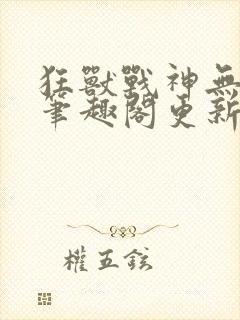 狂獸戰神無
筆趣閣更新
權五鉉